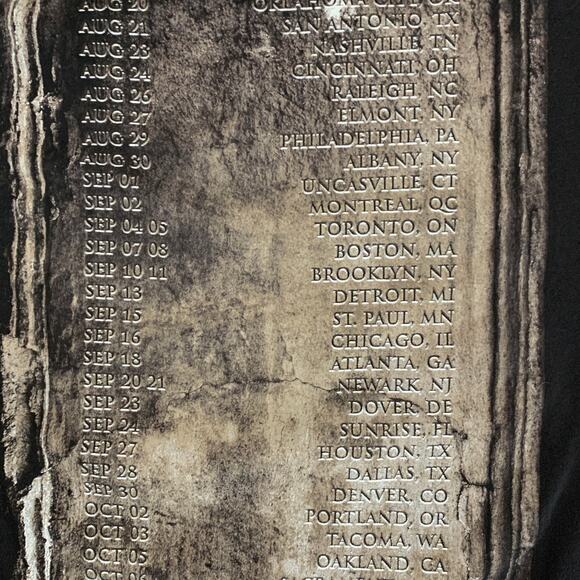 AUG 20 OKLAHOMA CITY OK
AUG 21 SAN ANTONIO, TX
AUG 23 NASHVILLE, TN
AUG 24 CINCINNATI, OH
AUG 26 RALEIGH, NC
AUG 27 ELMONT, NY
AUG 29 PHILADELPHIA, PA
AUG 30 ALBANY, NY
SEP 01 UNCASVILLE, CT
SEP 02 MONTREAL, QC
SEP 04 05 TORONTO, ON
SEP 07 08 BOSTON, MA
SEP 10 11 BROOKLYN, NY
SEP 13 DETROIT, MI
SEP 15 ST. PAUL, MN
SEP 16 CHICAGO, IL
SEP 18 ATLANTA, GA
SEP 20 21 NEWARK, NJ
SEP 23 DOVER, DE
SEP 24 SUNRISE, FL
SEP 27 HOUSTON, TX
SEP 28 DALLAS, TX
SEP 30 DENVER, CO
OCT 02 PORTLAND, OR
OCT 03 TACOMA, WA
OCT 05 OAKLAND, CA
OCT 06